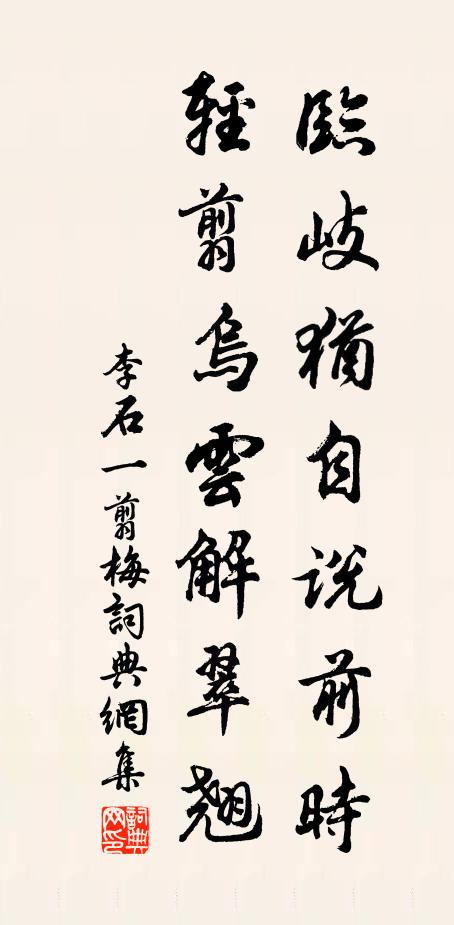 臨歧猶自説前時
輕翦烏雲解翠翹
李石一翦梅詞典網集
詞典網印